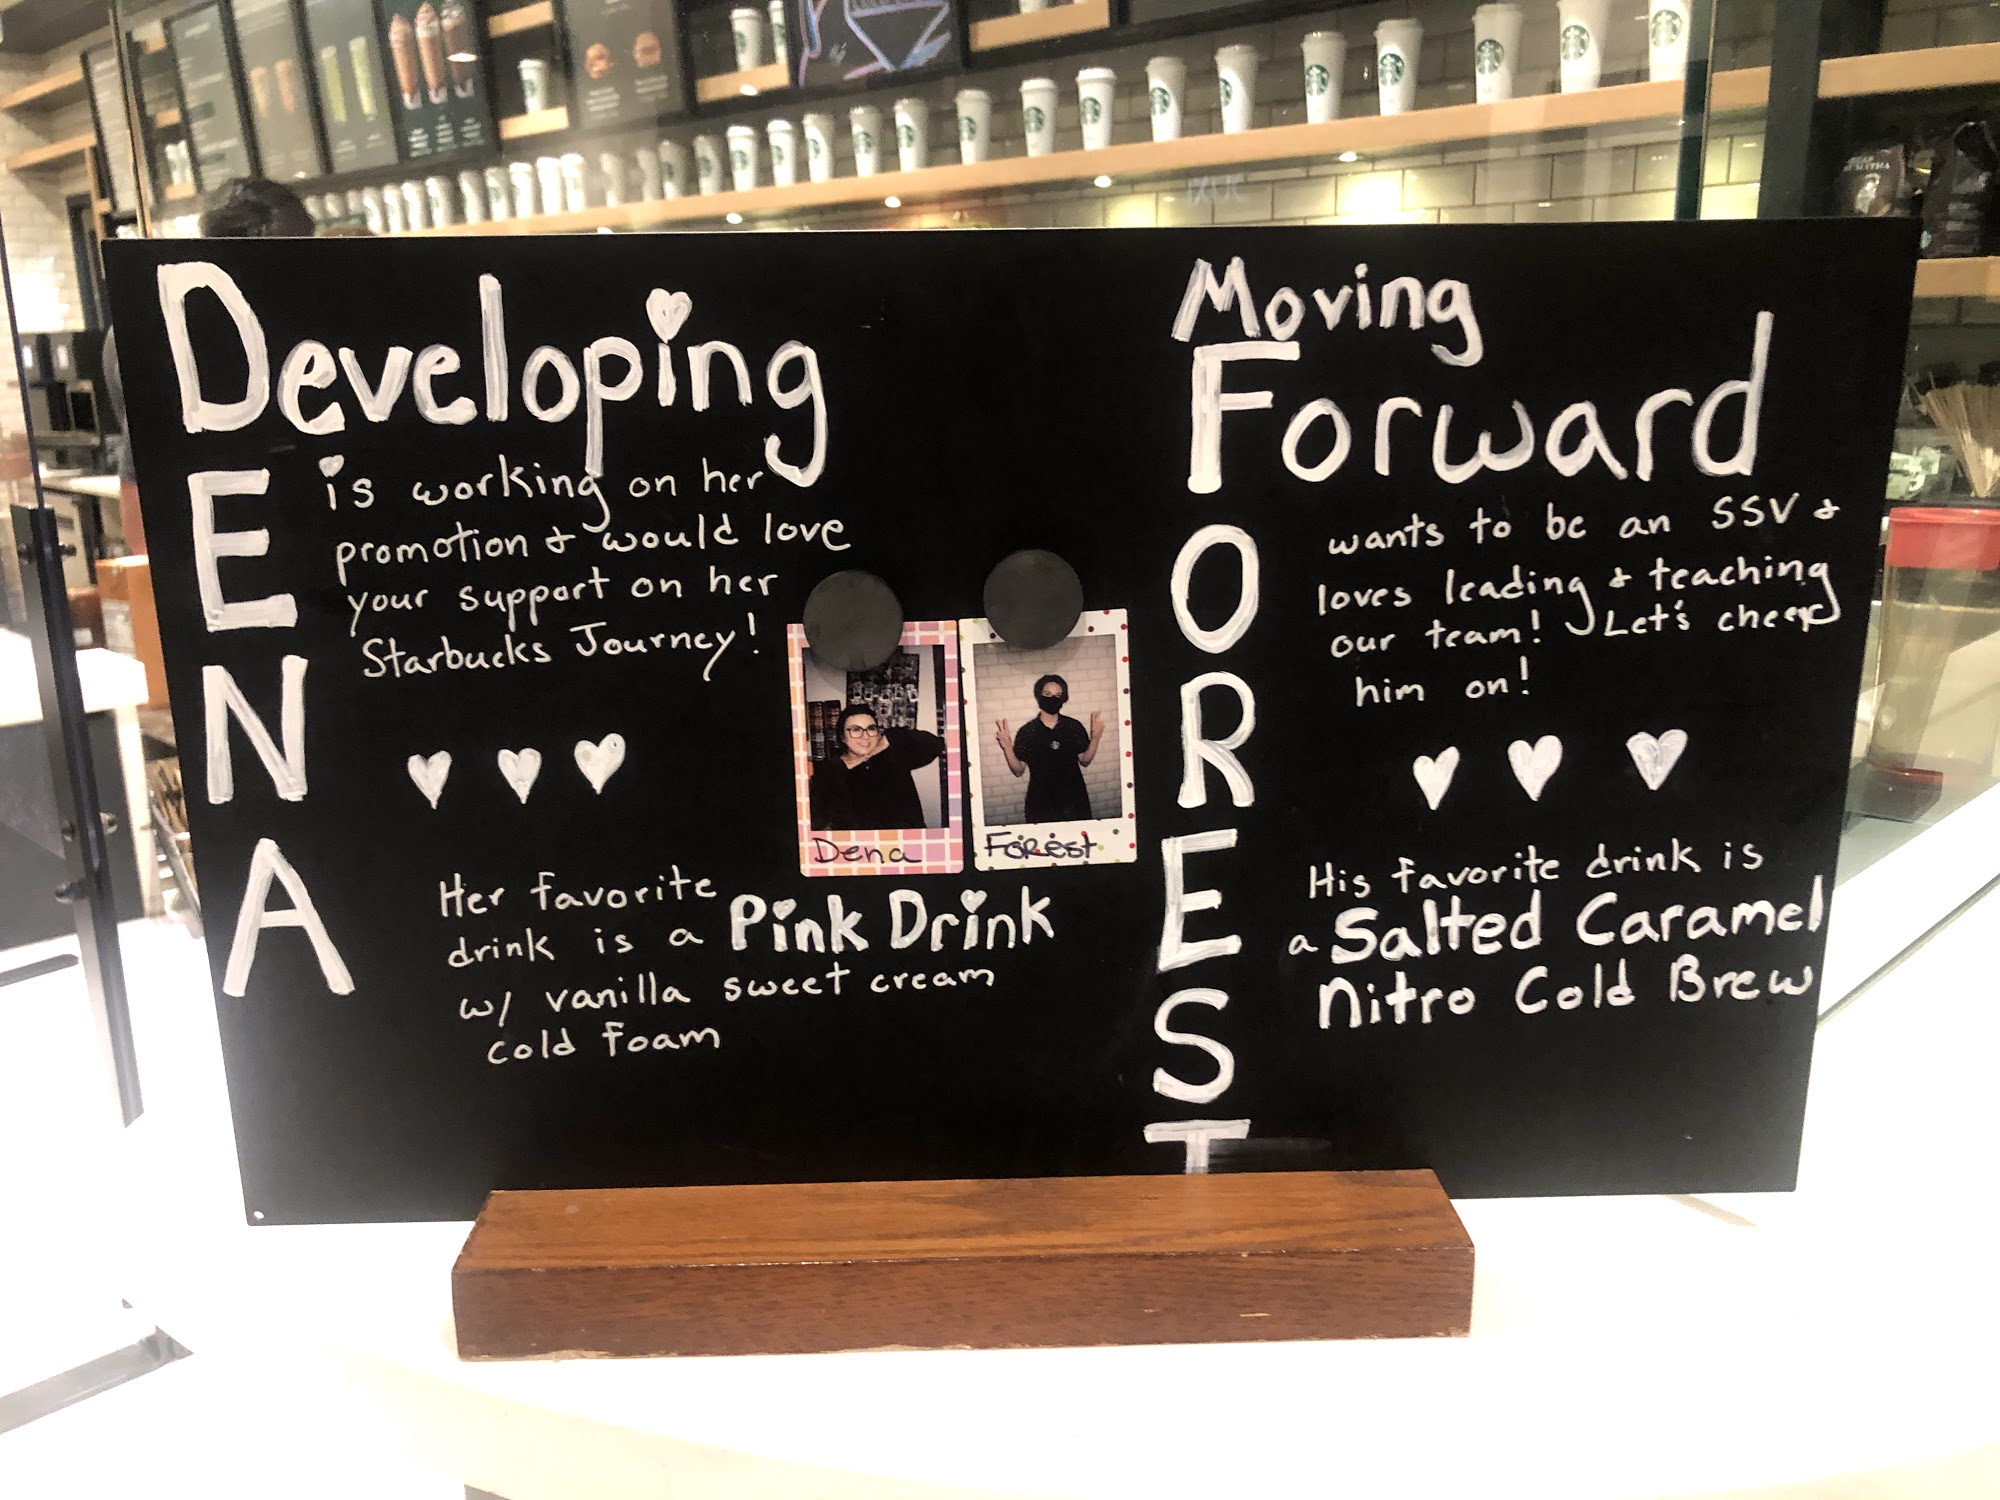 Developing
DENA
is working on her
promotion & would love
your support on her
Starbucks Journey!
Her favorite
drink is a Pink Drink
w/ vanilla sweet cream
cold foam
Dena
Forest
Moving
Forward
FOREST
wants to be an SSV &
loves leading & teaching
our team! Let's cheer
him on!
His favorite drink is
a Salted Caramel
Nitro Cold Brew